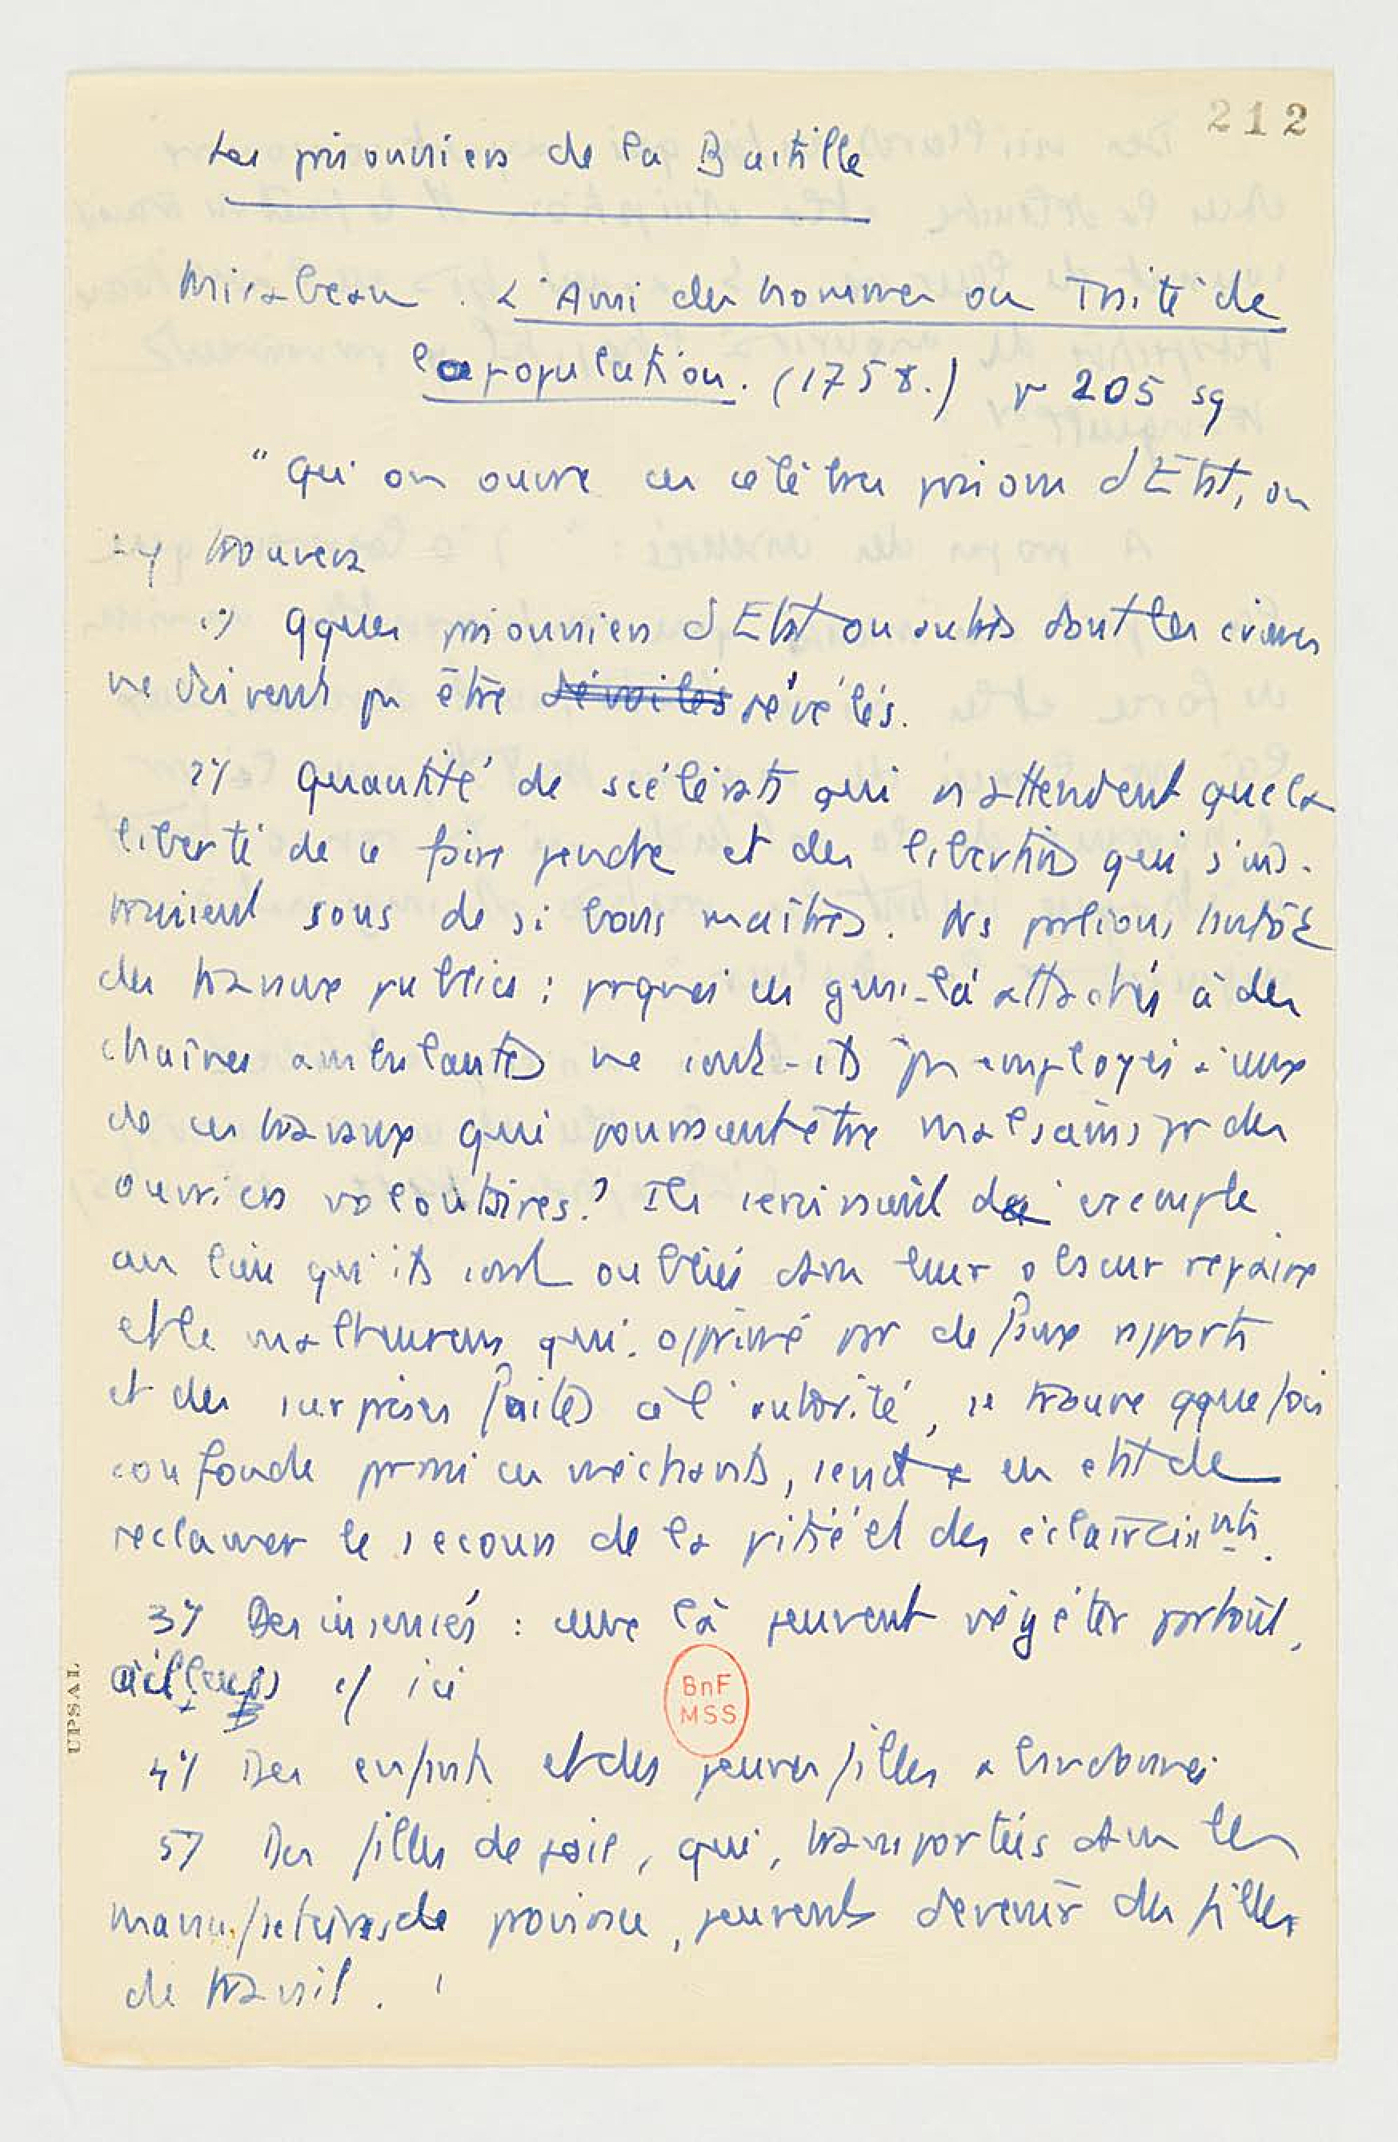 212
Les prisonniers de la Bastille
Mirabeau. L'Ami des hommes ou Traité de
la population. (1758.) p 205 sq
"Qu'on ouvre ces célèbres prisons d'Etat, on
y trouvera
1/ qques prisonniers d'Etat ou autres dont les crimes
ne doivent pas être dévoilés révélés.
2/ Quantité de scélérats qui n'attendent que la
liberté de se faire pendre et des libertins qui s'ins-
truisent sous de si bons maîtres. Ns parlions tantôt
des travaux publics : prquoi ces gens-là attachés à des
chaînes ambulantes ne sont-ils pas employés à ceux
de ces travaux qui pourraient être malsains pr des
ouvriers volontaires? Ils serviraient d'exemple
au lieu qu'ils sont oubliés dans leur obscur repaire
et le malheureux qui, opprimé par de faux rapports
et des surprises faites à l'autorité, se trouve qquefois
confondu parmi ces méchants, serait en état de
réclamer le secours de la pitié et des éclaircissnts.
3/ Des insensés : ceux là peuvent végéter partout,
ailleurs c/ ici
4/ Des enfants et des jeunes filles abandonnés
5/ Des filles de joie, qui, transportées dans les
manufactures de province, peuvent devenir des filles
de travail.
BnF
MSS
UPSAL